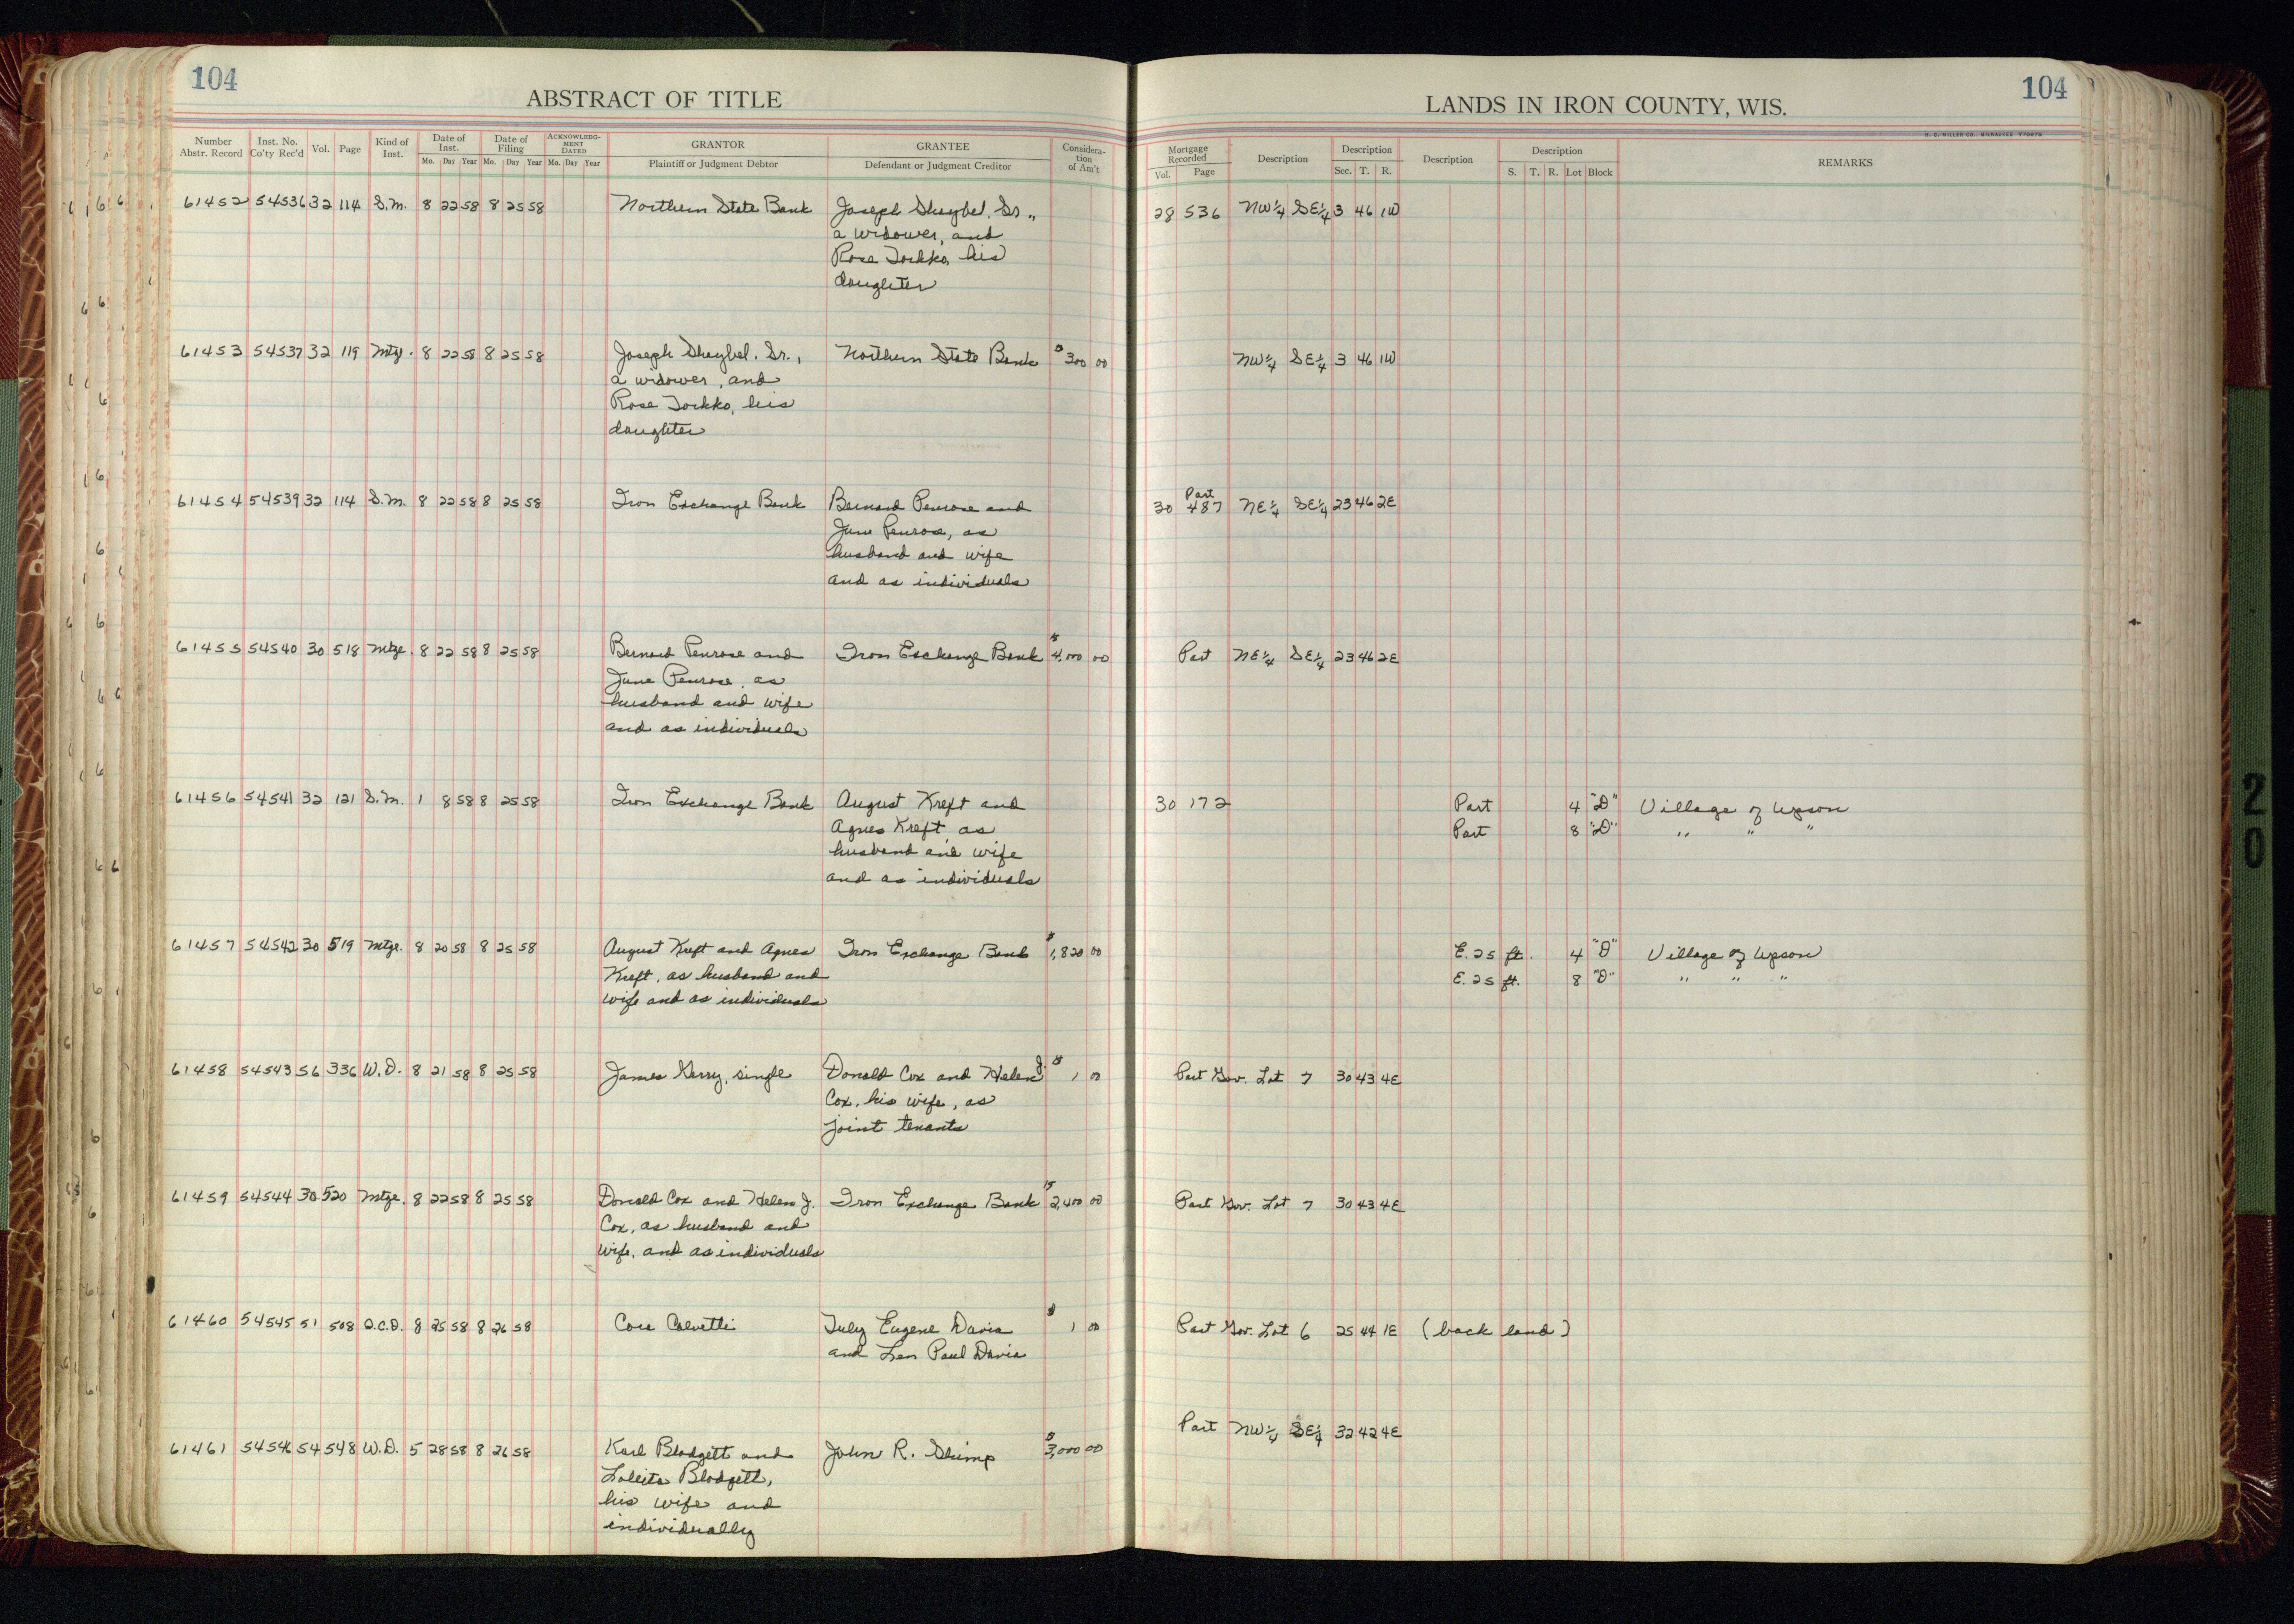 104
ABSTRACT OF TITLE
Number Abstr. Record
Inst. No. Co'ty Rec'd
Vol.
Page
Kind of Inst.
Date of Inst.
Mo. Day Year
Date of Filing
Mo. Day Year
ACKNOWLEDG-MENT DATED
Mo. Day Year
GRANTOR
Plaintiff or Judgment Debtor
GRANTEE
Defendant or Judgment Creditor
Considera-tion of Am't
61452 54536 32 114 S.M. 8 22 58 8 25 58 Northern State Bank Joseph Shaybel, Sr.,
a widower, and
Rose Tockko, his
daughter
61453 54537 32 119 Mtge. 8 22 58 8 25 58 Joseph Shaybel, Sr., Northern State Bank $300 00
a widower, and
Rose Tockko, his
daughter
61454 54539 32 114 S.M. 8 22 58 8 25 58 Iron Exchange Bank Bernard Penrose and
June Penrose, as
husband and wife
and as individuals
61455 54540 30 518 Mtge. 8 22 58 8 25 58 Bernard Penrose and Iron Exchange Bank $4,000 00
June Penrose, as
husband and wife
and as individuals
61456 54541 32 121 S.M. 1 8 58 8 25 58 Iron Exchange Bank August Kreft and
Agnes Kreft, as
husband and wife
and as individuals
61457 54542 30 519 Mtge. 8 20 58 8 25 58 August Kreft and Agnes Iron Exchange Bank $1,820 00
Kreft, as husband and
wife and as individuals
61458 54543 56 336 W.D. 8 21 58 8 25 58 James Gerry, single Donald Cox and Helen J. $1 00
Cox, his wife, as
joint tenants
61459 54544 30 520 Mtge. 8 22 58 8 25 58 Donald Cox and Helen J. Iron Exchange Bank $2,400 00
Cox, as husband and
wife, and as individuals
61460 54545 51 508 Q.C.D. 8 25 58 8 26 58 Cora Calvetti July Eugene Davia $1 00
and Len Paul Davia
61461 54546 54 548 W.D. 5 28 58 8 26 58 Karl Blodgett and John R. Shimp $3,000 00
Loleita Blodgett,
his wife and
individually
104
LANDS IN IRON COUNTY, WIS.
H. C. MILLER CO., MILWAUKEE
Mortgage Recorded
Vol. Page
Description
Description
Sec. T. R.
Description
Description
S. T. R. Lot Block
REMARKS
28 536 NW¼ SE¼ 3 46 1W
NW¼ SE¼ 3 46 1W
Part
30 487 NE¼ SE¼ 23 46 2E
Part NE¼ SE¼ 23 46 2E
30 172 Part 4 "D" Village of Upson
Part 8 "D" " " "
E. 25 ft. 4 "D" Village of Upson
E. 25 ft. 8 "D" " " "
Part Gov. Lot 7 30 43 4E
Part Gov. Lot 7 30 43 4E
Part Gov. Lot 6 25 44 1E (back land)
Part NW¼ SE¼ 32 42 4E
20